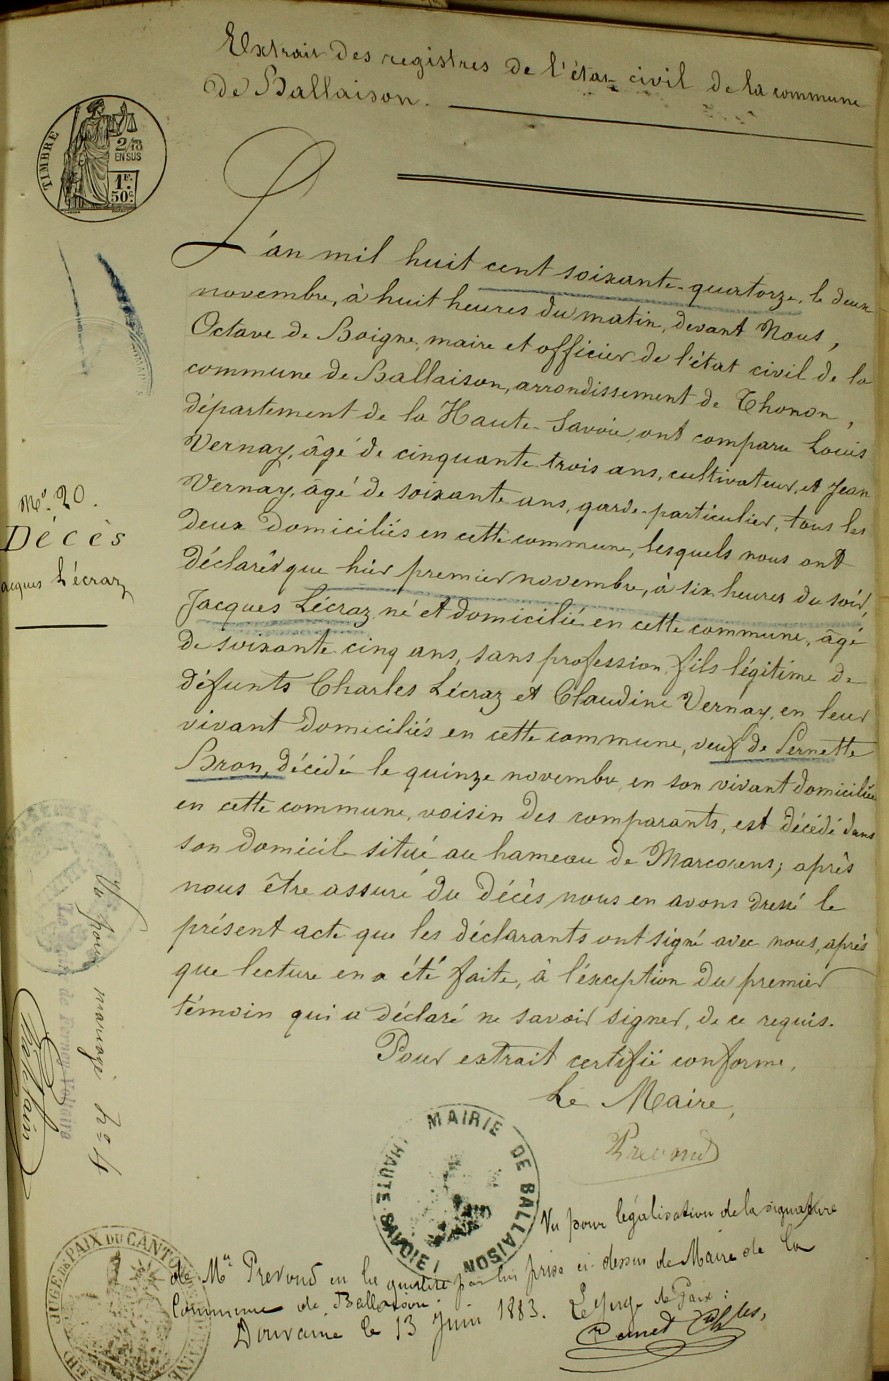 Extrait des registres de l'état civil de la commune
de Ballaison.
TIMBRE
2/10
EN SUS
1F.
50c
L'an mil huit cent soixante-quatorze, le deux
novembre, à huit heures du matin, devant Nous,
Octave de Boigne, maire et officier de l'état civil de la
commune de Ballaison, arrondissement de Thonon,
département de la Haute-Savoie, ont comparu Louis
Vernay, âgé de cinquante trois ans, cultivateur, et Jean
Vernay, âgé de soixante ans, garde-particulier, tous les
deux domiciliés en cette commune, lesquels nous ont
déclaré que hier premier novembre, à six heures du soir,
Jacques Lécraz, né et domicilié en cette commune, âgé
de soixante cinq ans, sans profession, fils légitime de
défunts Charles Lécraz et Claudine Vernay, en leur
vivant domiciliés en cette commune, veuf de Pernette
Bron, décédé le quinze novembre, en son vivant domiciliée
en cette commune, voisin des comparants, est décédé dans
son domicile situé au hameau de Marcorens; après
nous être assuré du décès nous en avons dressé le
présent acte que les déclarants ont signé avec nous, après
que lecture en a été faite, à l'exception du premier
témoin qui a déclaré ne savoir signer, de ce requis.
Pour extrait certifié conforme,
Le Maire,
Prevond
No. 20.
Décès
acques Lécraz
Vu pour mariage No 4
de Ferney Voltaire
MAIRIE DE BALLAISON
(HAUTE SAVOIE)
Vu pour légalisation de la signature
de Mr Prevond en la qualité par lui prise ci-dessus de Maire de la
Commune de Ballaison.
Douvaine le 13 Juin 1883. Le Juge de Paix:
JUGE DE PAIX DU CANTON